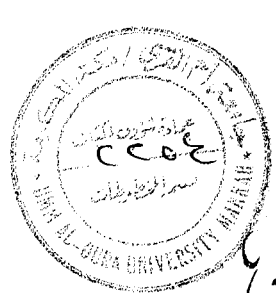 جامعة أم القرى / مكة المكرمة
عمادة شئون المكتبات
٢٢٥٤
قسم المخطوطات
UMM AL-QURA UNIVERSITY MAKKAH